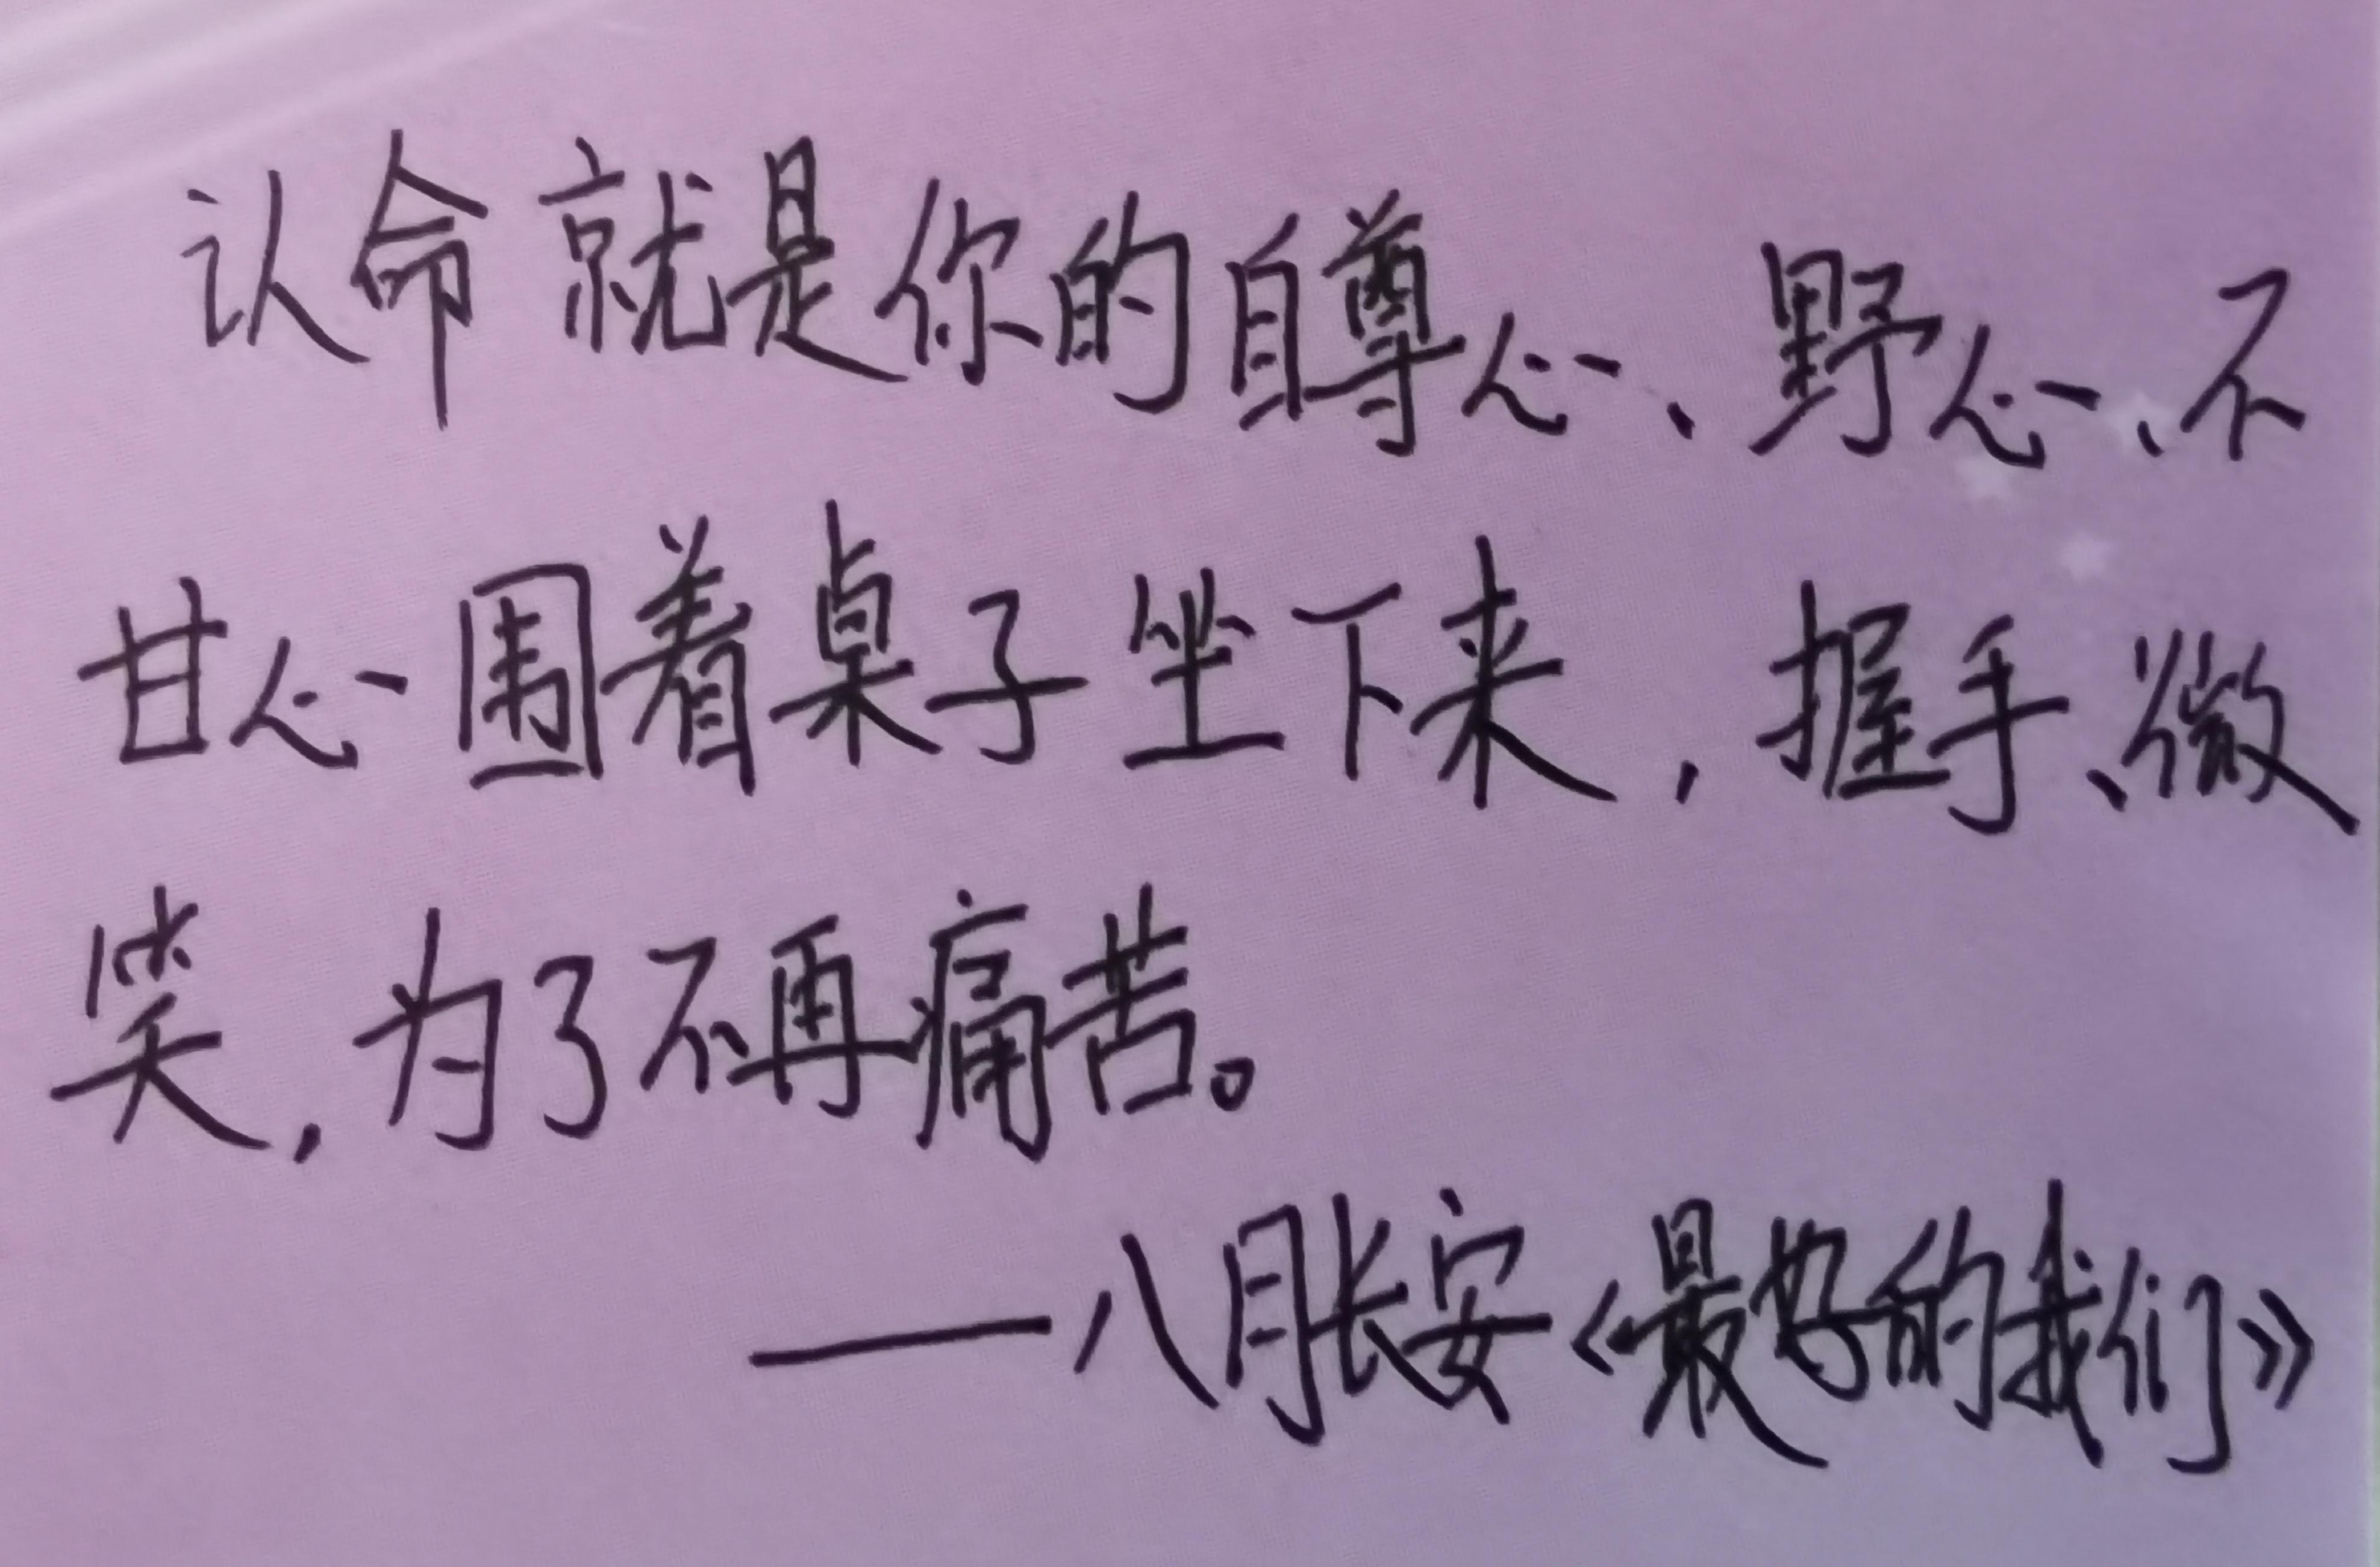 认命就是你的自尊心、野心、不
甘心围着桌子坐下来，握手、微
笑，为了不再痛苦。
——八月长安《最好的我们》